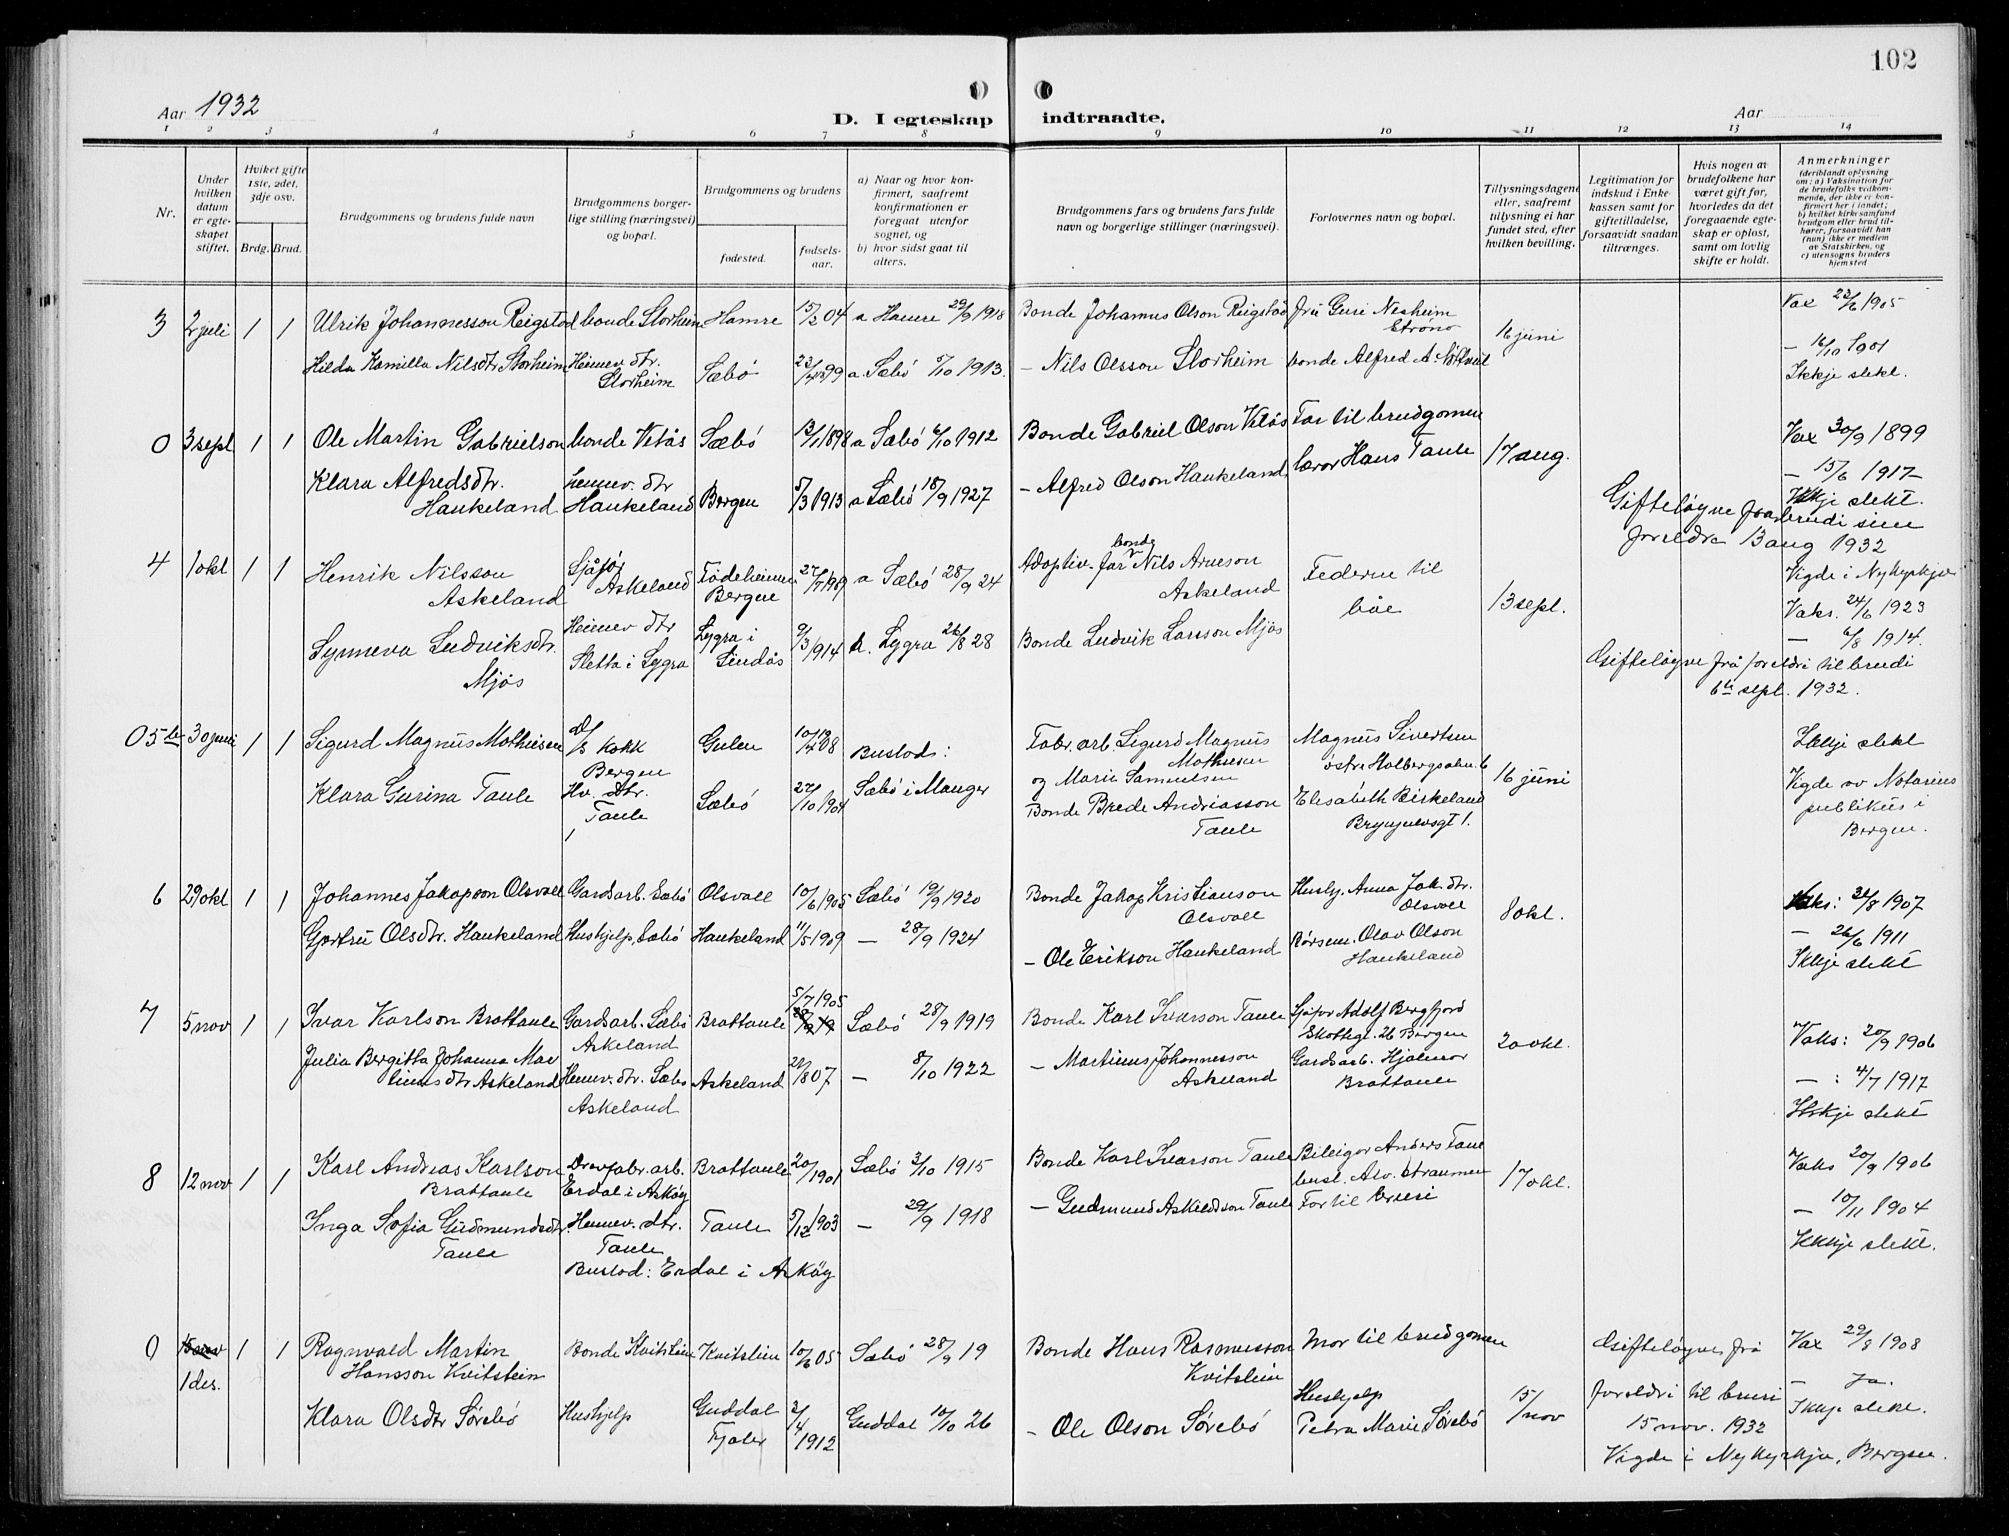 102
Aar 1932
D. I egteskap indtraadte.
Aar
1 2 3 4 5 6 7 8 9 10 11 12 13 14
Nr.
Under hvilken datum er egteskapet stiftet.
Hviket gifte 1ste, 2det, 3dje osv.
Brdg. Brud.
Brudgommens og brudens fulde navn
Brudgommens borgerlige stilling (næringsvei) og bopæl.
Brudgommens og brudens
fødested.
fødselsaar.
a) Naar og hvor konfirmert, saafremt konfirmationen er foregaat utenfor sognet, og
b) hvor sidst gaat til alters.
Brudgommens fars og brudens fars fulde navn og borgerlige stillinger (næringsvei).
Forlovernes navn og bopæl.
Tillysningsdagene eller, saafremt tillysning ei har fundet sted, efter hvilken bevilling.
Legitimation for indskud i Enkekassen samt for giftetilladelse, forsaavidt saadan tiltrænges.
Hvis nogen av brudefolkene har været gift før, hvorledes da det foregaaende egteskap er opløst, samt om lovlig skifte er holdt.
Anmerkninger
(deriblandt oplysning om: a) Vaksination for de brudefolks vedkommende, der ikke er konfirmert her i landet; b) hvilket kirkesamfund brudgom eller brud tilhører, forsaavidt han (hun) ikke er medlem av Statskirken, og c) utensogns bruders hjemsted
3 2 juli 1 1 Ulrik Johannesson Reigstad bonde Storheim Hamre 15/2 04 a Hamre 29/9 1918 Bonde Johannes Olson Reigstad Frú Guri Nesheim Strøno 16 juni Vax 22/6 1905
Hilda Kamilla Nilsdtr Storheim Heimev. dtr. Storheim Sæbö 99 a. Sæbö 5/10 1913. – Nils Olsson Storheim bonde Alfred A. – 16/10 1901
Ikkje slekt.
0 3 sept 1 1 Ole Martin Gabrielson bonde Vetås Sæbö 13/1 1898 a Sæbö 6/10 1912 Bonde Gabriel Olson Vetås Far til brudgomen 17 aug. Vax 30/9 1899
Klara Alfredsdtr. Haukeland heimev. dtr Haukeland Bergen 5/3 1913 a Sæbö 18/9 1927 – Alfred Olson Haukeland lærar Hans Taule – 15/6 1917
Ikkje slekt.
Gifteløyve frå brudi sine foreldre 13 aug 1932
4 1 okt 1 1 Henrik Nilsson Askeland Sjåfør Askeland Fødeheimen Bergen 27/7 1909 a Sæbö 28/9 24 Adoptiv. far bonde Nils Arneson Askeland Federne til båe 13 sept. Vigde i Nykyrkja
Vaks. 24/6 1923
Synneva Ludviksdtr. Mjös Heimev dtr Sletta i Lygra Lygra i Lindås 9/3 1914 a. Lygra 26/8 28 Bonde Ludvik Larsson Mjös – 6/8 1914.
Gifteløyve frå foreldri til brudi 6te sept. 1932.
0 5te 30 juni 1 1 Sigurd Magnus Mathiesen d/s kokk Bergen Gulen 10/4 1908 Bustad: Fabr. arb. Sigurd Magnus Mathiesen og Marie Samuelsen Magnus Sivertsen østre Holbergsalm. 6 16 juni Ikkje slekt
Klara Gurina Taule Hv. dtr. Taule Sæbö 27/10 1904 Sæbö i Manger Bonde Brede Andriasson Taule Elisabeth Birkeland 1. Vigde av Notarius publikus i Bergen.
6 29 okt 1 1 Johannes Jakopson Olsvoll Gardsarb. Sæbö Olsvoll 10/6 1905 Sæbö 19/9 1920 Bonde Jakop Kristianson Olsvoll Hushj. Anna Jak. dtr. Olsvoll 8 okt. Vaks: 31/8 1907
Gjertru Olsdtr. Haukeland Hushjelp Sæbö Haukeland 11/5 1909 – 28/9 1924 – Ole Erikson Haukeland Olav Olson Haukeland – 26/6 1911
Ikkje slekt
7 5 nov 1 1 Ivar Karlson Brattaule Gardsarb. Sæbö Askeland Brattaule 5/7 1905 Sæbö 28/9 1919 Bonde Karl Ivarson Taule Sjåfør Adolf Bergfjord Skottegt. 26 Bergen 20 okt. Vaks: 20/9 1906
Julia Bergitta Johanna Martinusdtr Askeland Heimev. dtr. Sæbö Askeland Askeland 22/8 07 – 8/10 1922 – Martinus Johannesson Askeland Gardsarb. Hjalmar Brattaule – : 4/7 1917
Ikkje slekt
8 12 nov 1 1 Karl Andreas Karlson Brattaule arb. Erdal i Askøy Brattaule 20/1 1901 Sæbö 3/10 1915 Bonde Karl Ivarson Taule Bileigar Anders Taule Straumen 17 okt. Vaks 20/9 1906
Inga Sofia Gudmundsdtr Taule Heimev. dtr. Taule Taule 5/12 1903 – 29/9 1918 – Gudmund Askeldson Taule Far til brudi – 10/11 1904
Bustad: Erdal i Askøy Ikkje slekt.
0 15 nov 1 des. 1 1 Ragnvald Martin Hansson Kvitstein Bonde Kvitstein Kvitstein 10/6 05 Sæbö 28/9 19 Bonde Hans Rasmusson Kvitstein Mor til brudgomen 15/nov Gifteløyve frå foreldri til brudi 15 nov. 1932 Vax 29/8 1908
Klara Olsdtr Sørebö Hushjelp Guddal Fjaler 2/4 1912 Guddal 10/10 26 – Ole Olson Sørebö Hushjelp Petra Marie Sørebö – Ja.
Ikkje slekt.
Vigde i Nykyrkja, Bergen.